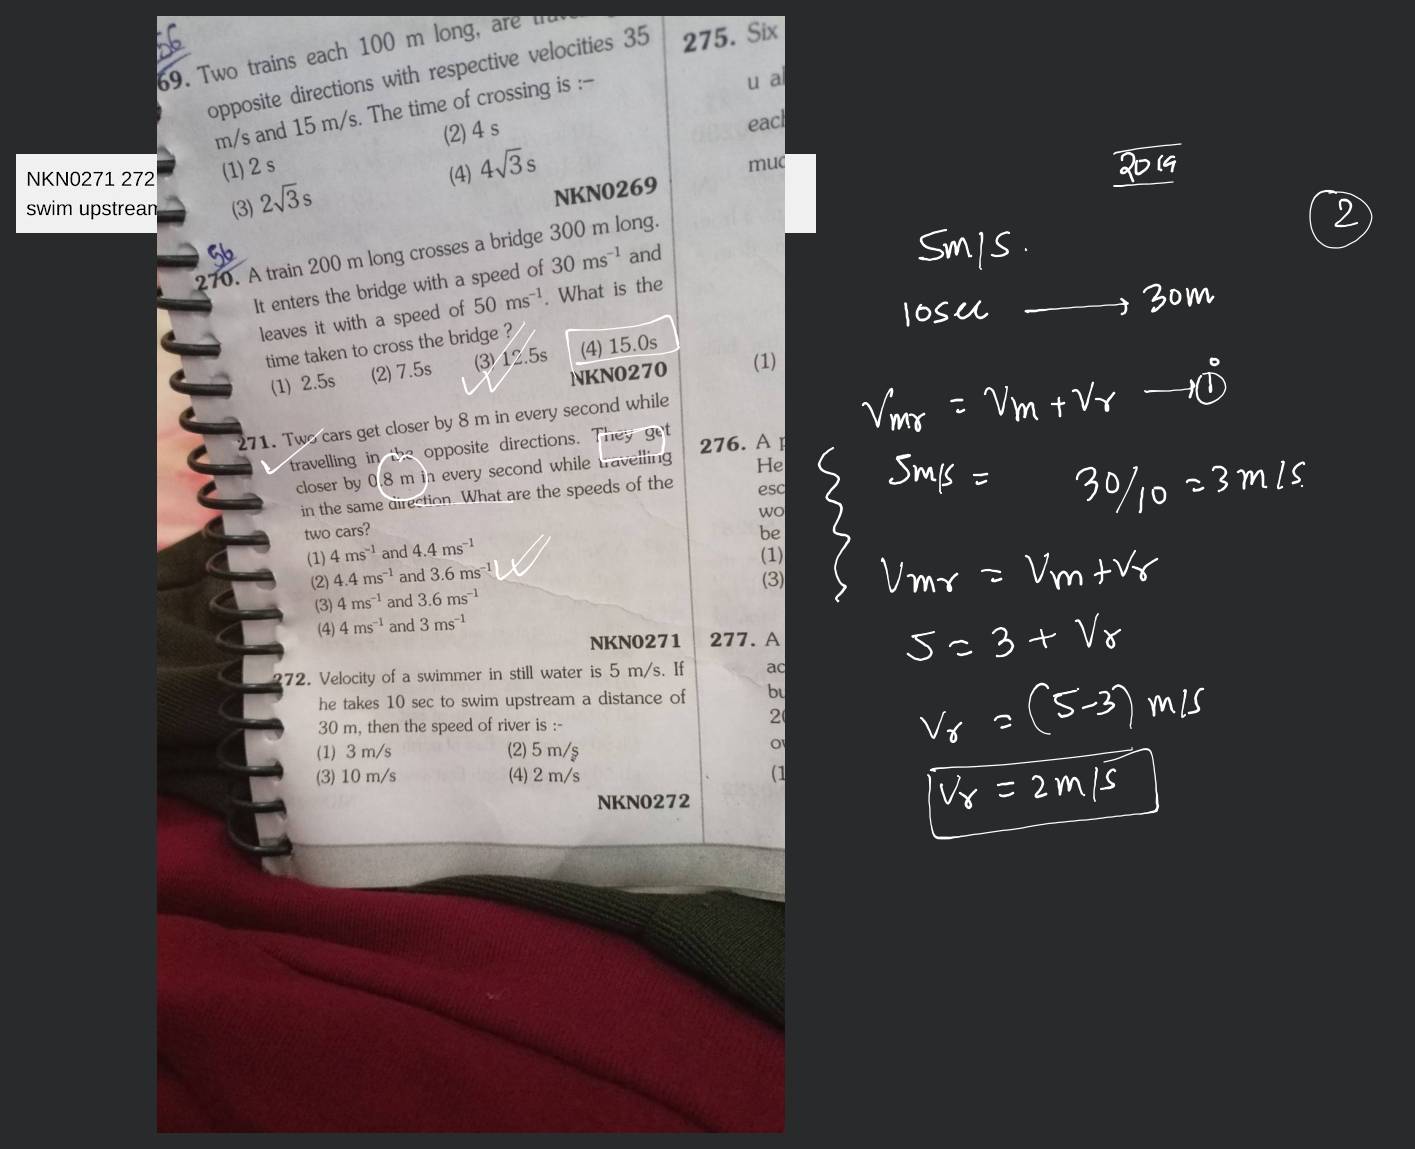 56
69. Two trains each 100 m long, are
opposite directions with respective velocities 35
m/s and 15 m/s. The time of crossing is :–
(1) 2 s
(2) 4 s
(3) 2√3 s
(4) 4√3 s
NKN0269
56
270. A train 200 m long crosses a bridge 300 m long.
It enters the bridge with a speed of 30 ms⁻¹ and
leaves it with a speed of 50 ms⁻¹. What is the
time taken to cross the bridge ?
(1) 2.5s (2) 7.5s (3) 12.5s (4) 15.0s
NKN0270
271. Two cars get closer by 8 m in every second while
travelling in the opposite directions. They get
closer by 0.8 m in every second while travelling
in the same direction. What are the speeds of the
two cars?
(1) 4 ms⁻¹ and 4.4 ms⁻¹
(2) 4.4 ms⁻¹ and 3.6 ms⁻¹
(3) 4 ms⁻¹ and 3.6 ms⁻¹
(4) 4 ms⁻¹ and 3 ms⁻¹
NKN0271
272. Velocity of a swimmer in still water is 5 m/s. If
he takes 10 sec to swim upstream a distance of
30 m, then the speed of river is :-
(1) 3 m/s (2) 5 m/s
(3) 10 m/s (4) 2 m/s
NKN0272
275. Six
u al
each
muc
(1)
276. A p
He
esc
wo
be
(1)
(3)
277. A
ac
bu
20
ov
(1
NKN0271 272
swim upstream
2019
2
5m/s.
10sec ⟶ 30m
Vmr = Vm + Vr ⟶ ①
5m/s = 30/10 = 3m/s.
Vmr = Vm + Vr
5 = 3 + Vr
Vr = (5-3) m/s
Vr = 2m/s